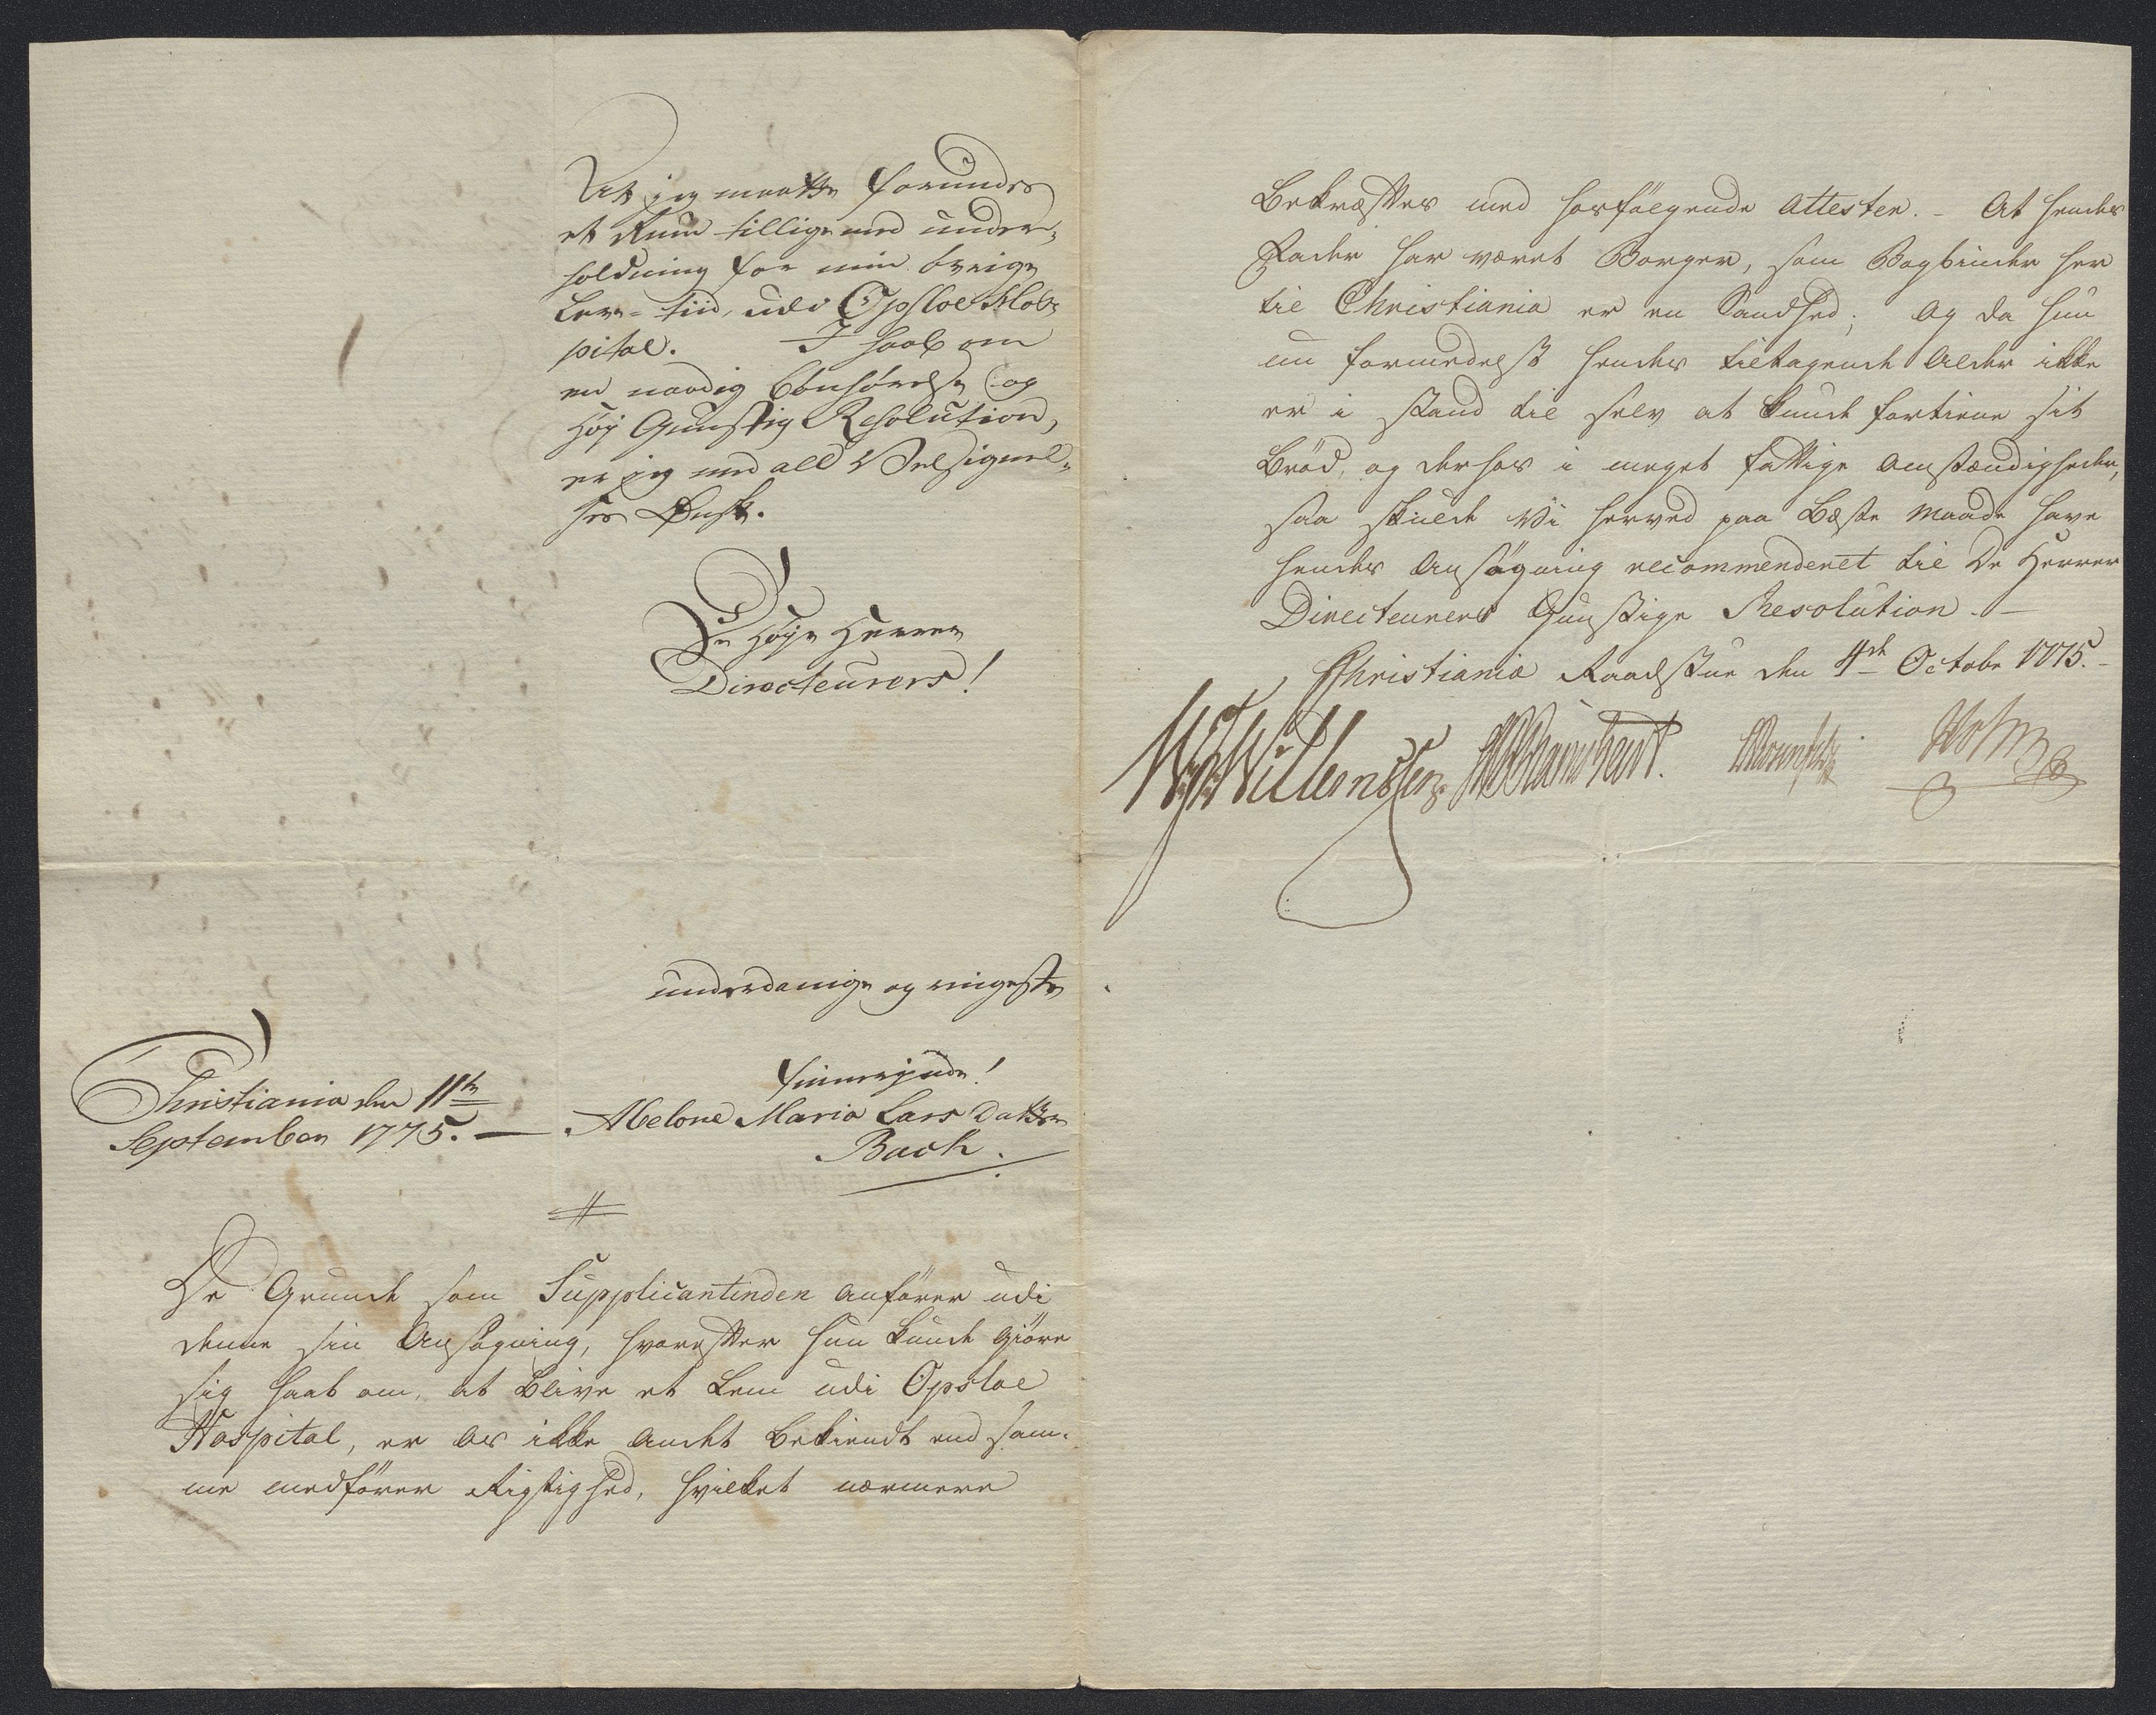 At jeg maatte forundes
et Rum tilligemed under-
holdning for min övrige
Leve-tiid, udi Opsloe Hos-
pital. I haab om
en naadig bönhørelse og
Høy Gunstig Resolution,
er jeg med all Velsignel-
ses Ønsk.
De Høye Herrer
Directeurers!
underdanige og ringeste
tiennerinde!
Christiania den 11te
September 1775. —
Abelone Maria Lars Datter
Bach.
De Grunde som Supplicantinden anförer udi
denne sin Ansögning, hvorefter hun kunde giöre
sig haab om, at blive et Lem udi Opsloe
Hospital, er os ikke andet bekiendt end sam-
me medförer Rigtighed, hvilket nærmere
Bekræftes med hosfølgende Attester. - At hendes
Fader har været Borger, som Bogbinder her
til Christiania er en Sandhed; Og da hun
nu formedelst hendes tiltagende Alder ikke
er i stand til selv at kunde fortiene sit
Bröd, og derhos i meget fattige Omstændigheder,
saa skulde Vi herved paa Beste Maade have
hendes Ansögning recommenderet til De Herrer
Directeurers Gunstige Resolution. —
Christiania Raadstue den 4de Octobr 1775. -
Willemssen